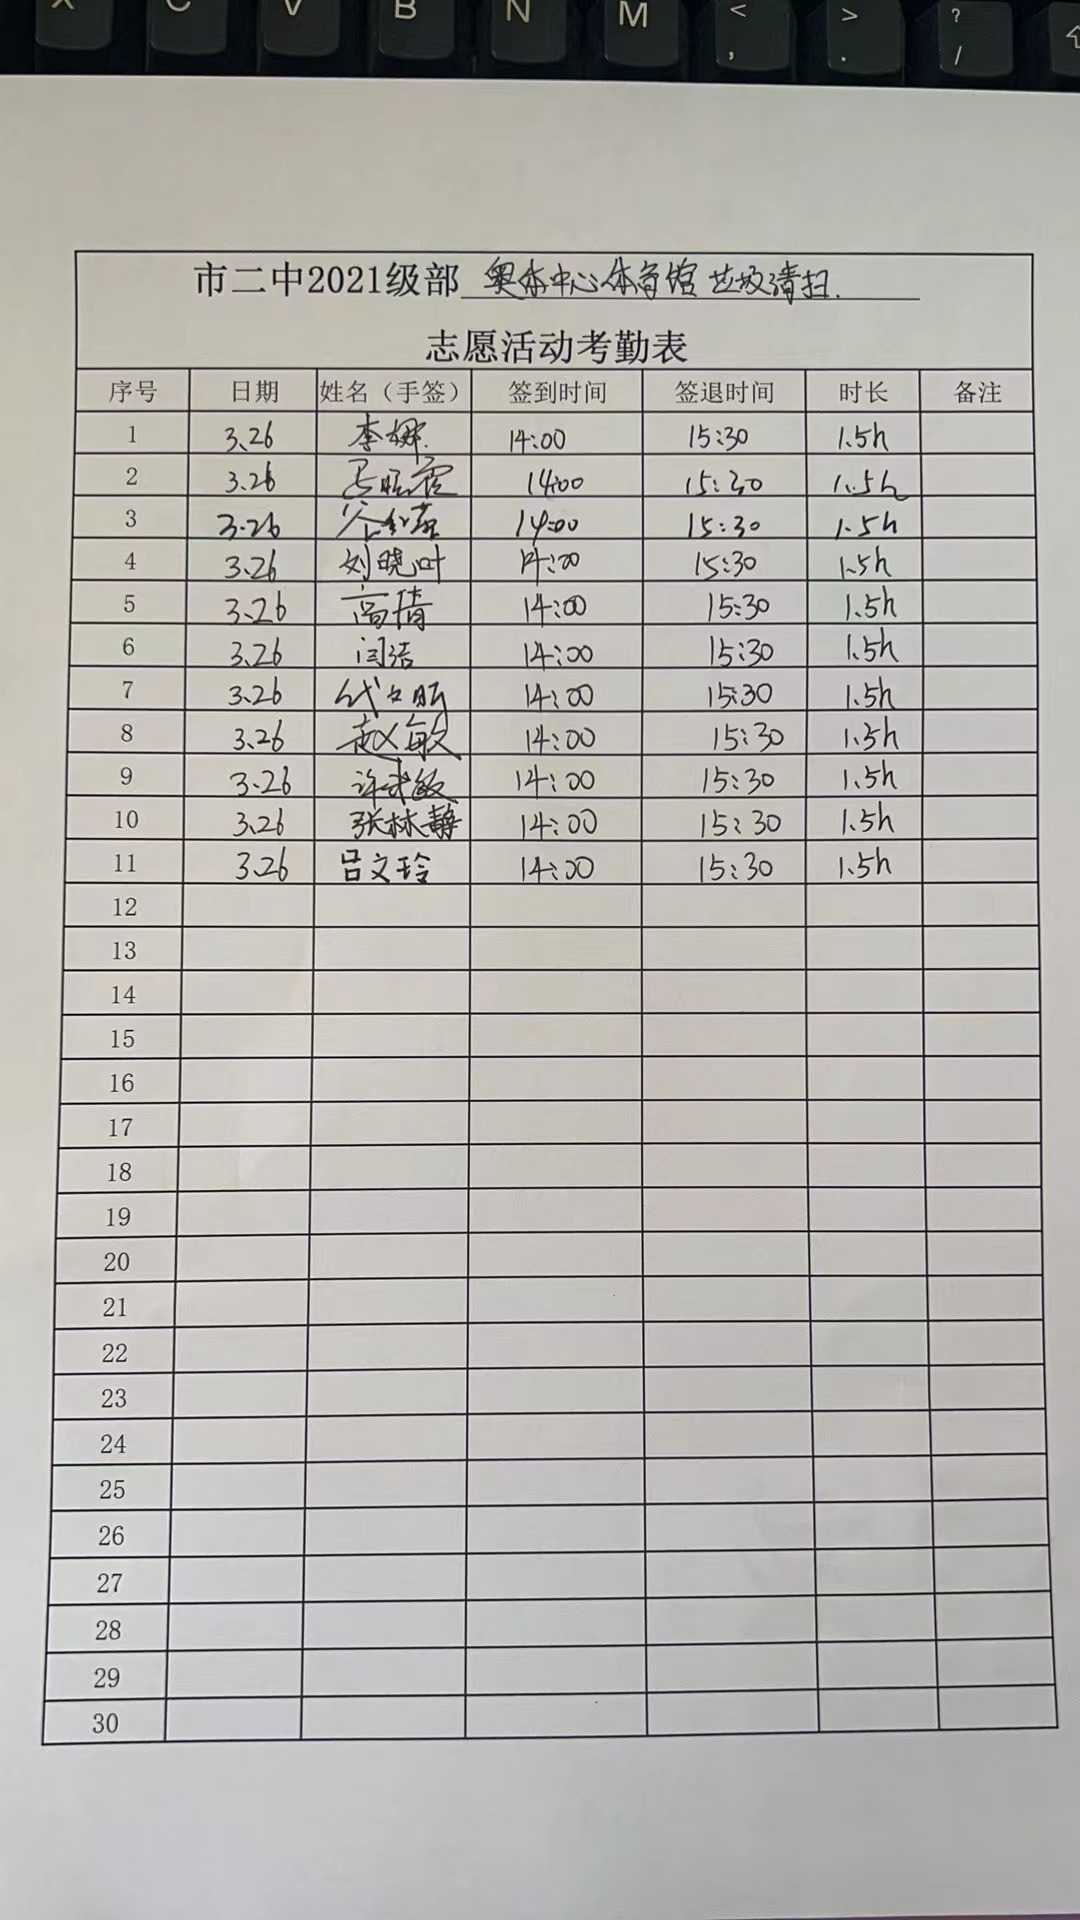 X C V B N M < , > . ? /
市二中2021级部 奥体中心体育馆垃圾清扫.
志愿活动考勤表
序号 日期 姓名（手签） 签到时间 签退时间 时长 备注
1 3.26 李娜. 14:00 15:30 1.5h
2 3.26 14:00 15:30 1.5h
3 3.26 14:00 15:30 1.5h
4 3.26 刘晓叶 14:00 15:30 1.5h
5 3.26 高倩 14:00 15:30 1.5h
6 3.26 闫洁 14:00 15:30 1.5h
7 3.26 14:00 15:30 1.5h
8 3.26 赵敏 14:00 15:30 1.5h
9 3.26 14:00 15:30 1.5h
10 3.26 张林静 14:00 15:30 1.5h
11 3.26 吕文玲 14:00 15:30 1.5h
12
13
14
15
16
17
18
19
20
21
22
23
24
25
26
27
28
29
30